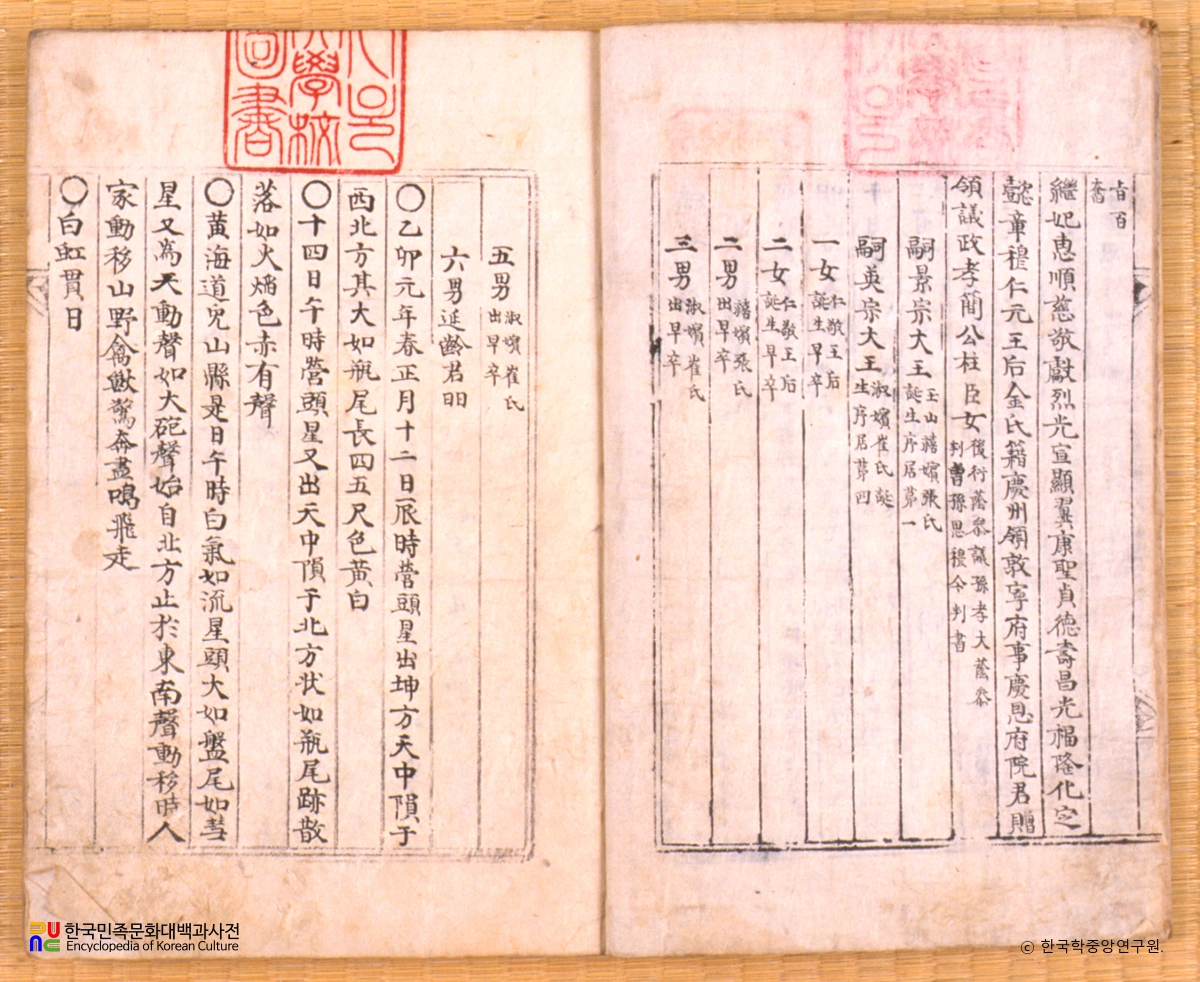 繼妃惠順慈敬獻烈光宣顯翼康聖貞德壽昌光福隆化定
懿章穆仁元王后金氏籍慶州領敦寧府事慶恩府院君贈
領議政孝簡公柱臣女
後行蔭參議孫孝大蔭參
判曾孫思穆今判書
嗣景宗大王
玉山禧嬪張氏
誕生序居第一
嗣英宗大王
淑嬪崔氏誕
生序居第四
一女
仁敬王后
誕生早卒
二女
仁敬王后
誕生早卒
二男
禧嬪張氏
出早卒
三男
淑嬪崔氏
出早卒
五男
淑嬪崔氏
出早卒
六男延齡君昍
〇乙卯元年春正月十二日辰時營頭星出坤方天中隕于
西北方其大如甁尾長四五尺色黃白
〇十四日午時營頭星又出天中隕于北方状如甁尾跡散
落如火焰色赤有聲
〇黃海道兎山縣是日午時白氣如流星頭大如盤尾如彗
星又爲天動聲如大砲聲始自北方止於東南聲動移時人
家動移山野禽獸驚奔盡鳴飛走
〇白虹貫日
學校
圖書
한국민족문화대백과사전
Encyclopedia of Korean Culture
© 한국학중앙연구원.